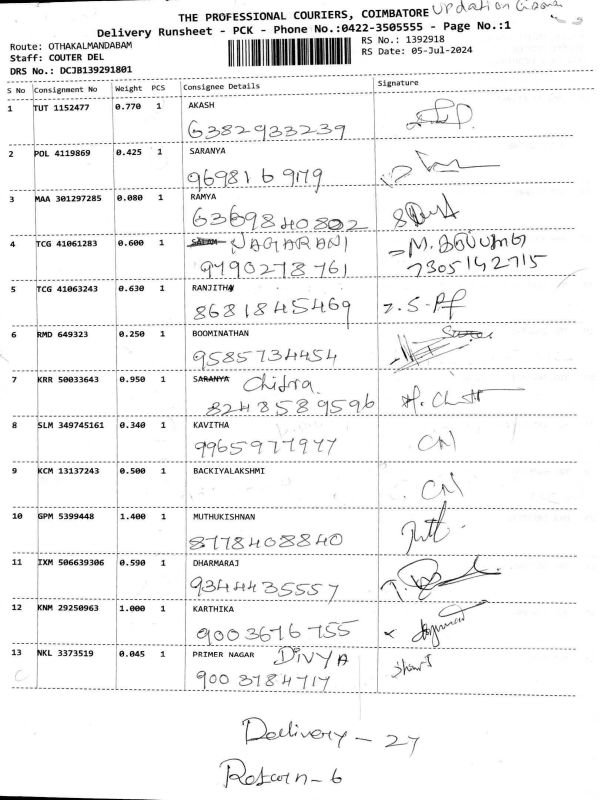 THE PROFESSIONAL COURIERS, COIMBATORE Updation
Delivery Runsheet - PCK - Phone No.:0422-3505555 - Page No.:1
Route: OTHAKALMANDABAM RS No.: 1392918
Staff: COUTER DEL RS Date: 05-Jul-2024
DRS No.: DCJB139291801
S No Consignment No Weight PCS Consignee Details Signature
1 TUT 1152477 0.770 1 AKASH
6382933239
2 POL 4119869 0.425 1 SARANYA
9698169179
3 MAA 301297285 0.080 1 RAMYA
6369840802
4 TCG 41061283 0.600 1 SALAM NAGARANI
9790278761 7305142715
5 TCG 41063243 0.630 1 RANJITHA
8681845469
6 RMD 649323 0.250 1 BOOMINATHAN
9585734454
7 KRR 50033643 0.950 1 SARANYA Chitra
8248589596
8 SLM 349745161 0.340 1 KAVITHA
9965977977 CN
9 KCM 13137243 0.500 1 BACKIYALAKSHMI
CN
10 GPM 5399448 1.400 1 MUTHUKISHNAN
8778408840
11 IXM 506639306 0.590 1 DHARMARAJ
9344435557
12 KNM 29250963 1.000 1 KARTHIKA
9003676755
13 NKL 3373519 0.045 1 PRIMER NAGAR DIVYA
9003784717
Dellivery - 27
Retarn - 6